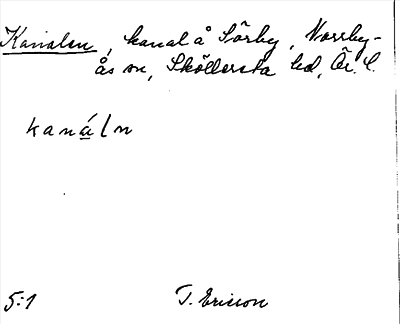 Kanalen, kanal å Sörby, Norrby-
ås sn, Sköllersta hd, Ör. l.
kanáln
5:1 T. Ericson